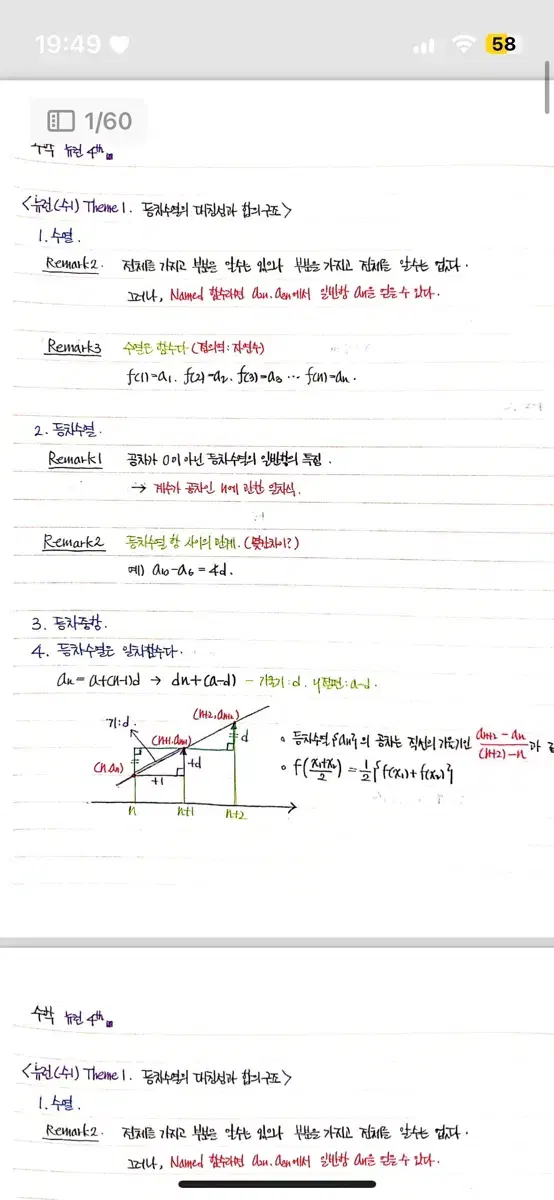 19:49
58
1/60
수학 뉴런 4th
<뉴런(수1) Theme 1. 등차수열의 대칭성과 합의 구조>
1. 수열.
Remark2. 전체를 가지고 부분을 알수는 있으나 부분을 가지고 전체를 알수는 없다.
그러나, Named 함수라면 a₂n에서 일반항 an을 얻을 수 있다.
Remark3 수열은 함수다 (정의역: 자연수)
f(1)=a₁. f(2)=a₂. f(3)=a₃ ... f(n)=an.
2. 등차수열.
Remark1 공차가 0이 아닌 등차수열의 일반항의 특징.
→ 계수가 공차인 n에 관한 일차식.
Remark2 등차수열 항 사이의 관계. (몇칸차이?)
예) a₁₀-a₆=4d.
3. 등차중항.
4. 등차수열은 일차함수다.
an=a+(n-1)d → dn+(a-d) - 기울기:d. y절편:a-d.
기:d.
(n, an)
(n+1, an+1)
(n+2, an+2)
+1
+d
d
n
n+1
n+2
◦ 등차수열 {an}의 공차는 직선의 기울기인 (an+2 - an)/((n+2)-n)과
◦ f((x₁+x₂)/2) = 1/2{f(x₁)+f(x₂)}
수학 뉴런 4th
<뉴런(수1) Theme 1. 등차수열의 대칭성과 합의 구조>
1. 수열.
Remark2. 전체를 가지고 부분을 알수는 있으나 부분을 가지고 전체를 알수는 없다.
그러나, Named 함수라면 a₂n에서 일반항 an을 얻을 수 있다.